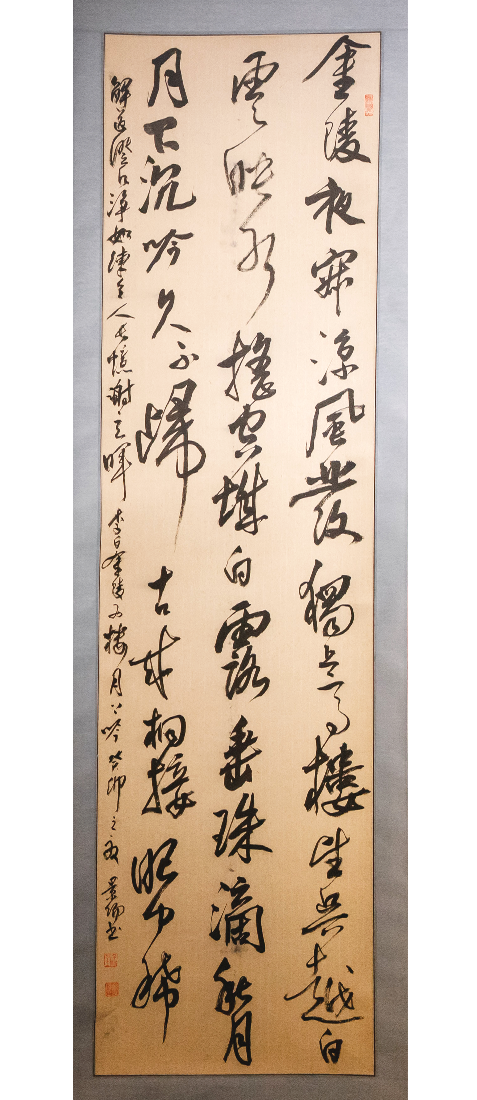 金陵夜寂涼風發獨上高樓望吳越白
雲映水搖空城白露垂珠滴秋月
月下沉吟久不歸古來相接眼中稀
解道澄江淨如練令人長憶謝玄暉 李白金陵西樓月下吟 癸卯之秋 景書